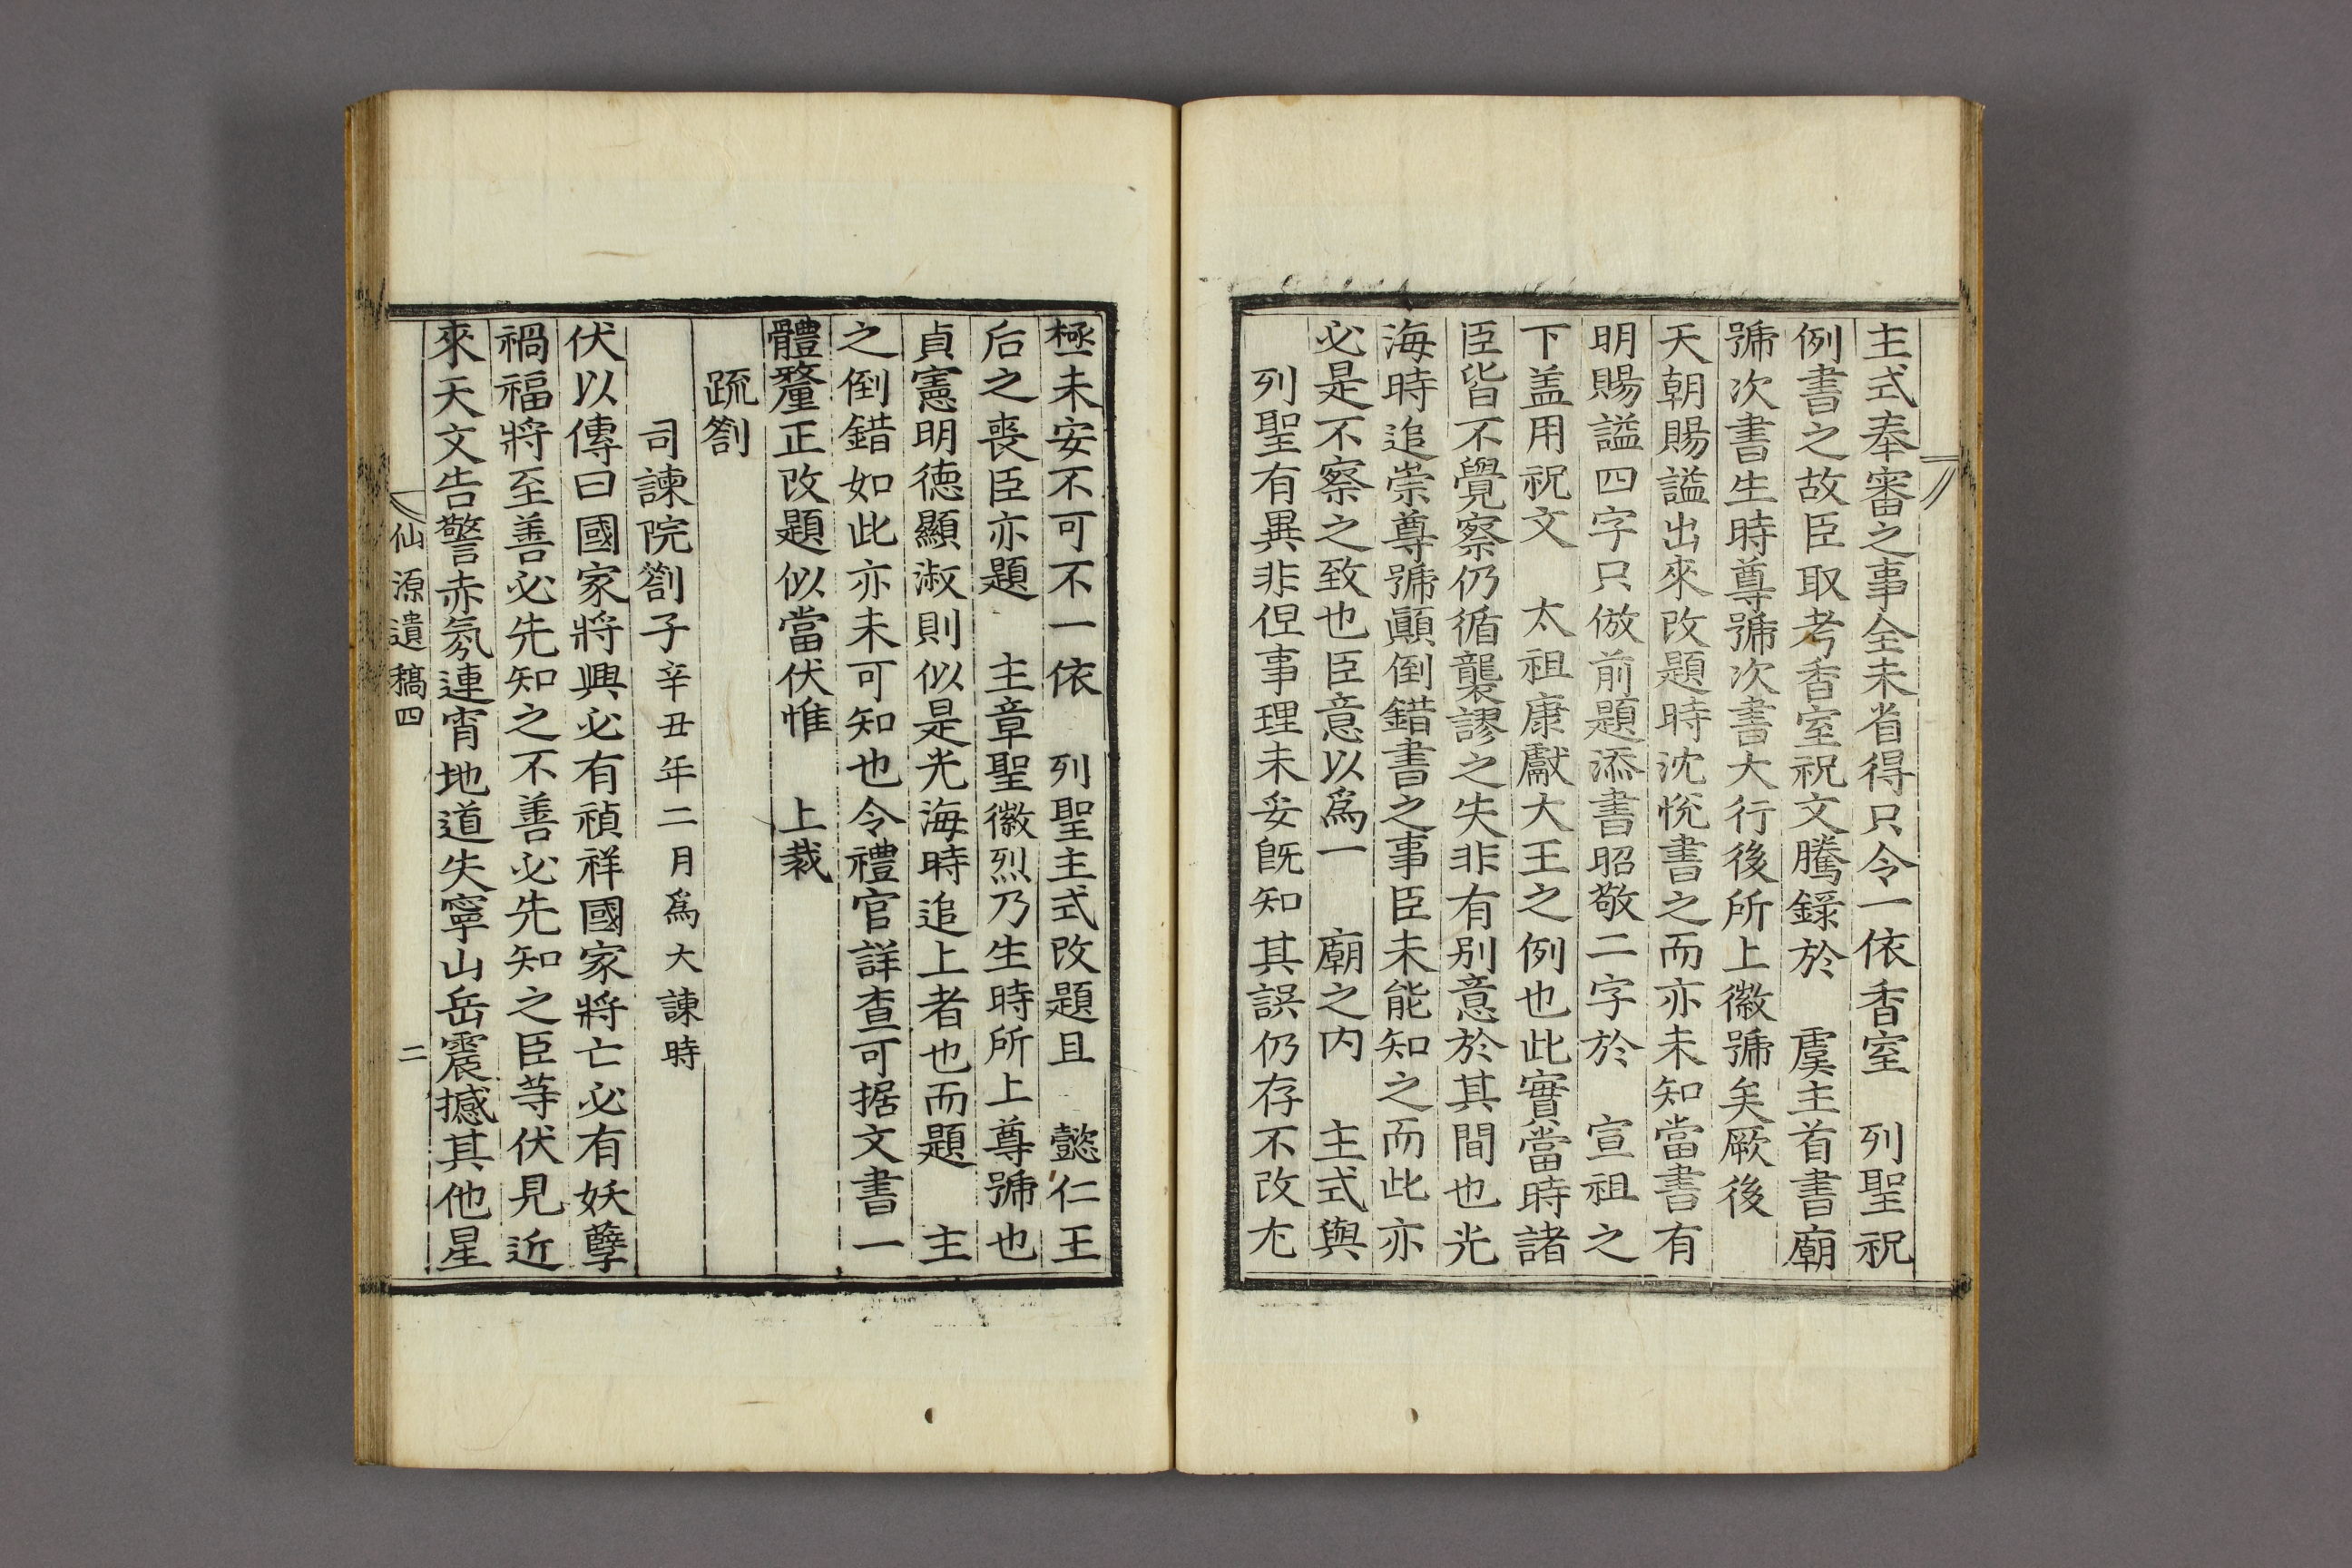 主式奉審之事全未省得只令一依香室　列聖祝
例書之故臣取考香室祝文騰錄於　虞主首書廟
號次書生時尊號次書大行後所上徽號矣厥後
天朝賜謚出來改題時沈悅書之而亦未知當書有
明賜謚四字只倣前題添書昭敬二字於　宣祖之
下盖用祝文　太祖康獻大王之例也此實當時諸
臣皆不覺察仍循襲謬之失非有别意於其間也光
海時追崇尊號顚倒錯書之事臣未能知之而此亦
必是不察之致也臣意以爲一　廟之内　主式與
列聖有異非但事理未妥旣知其誤仍存不改尤
極未安不可不一依　列聖主式改題且　懿仁王
后之喪臣亦題　主章聖徽烈乃生時所上尊號也
貞憲明德顯淑則似是光海時追上者也而題　主
之倒錯如此亦未可知也令禮官詳查可据文書一
體釐正改題似當伏惟　上裁
疏劄
司諫院劄子辛丑年二月爲大諫時
伏以傳曰國家將興必有禎祥國家將亡必有妖孽
禍福將至善必先知之不善必先知之臣等伏見近
來天文告警赤氛連宵地道失寧山岳震撼其他星
仙源遺稿四　二